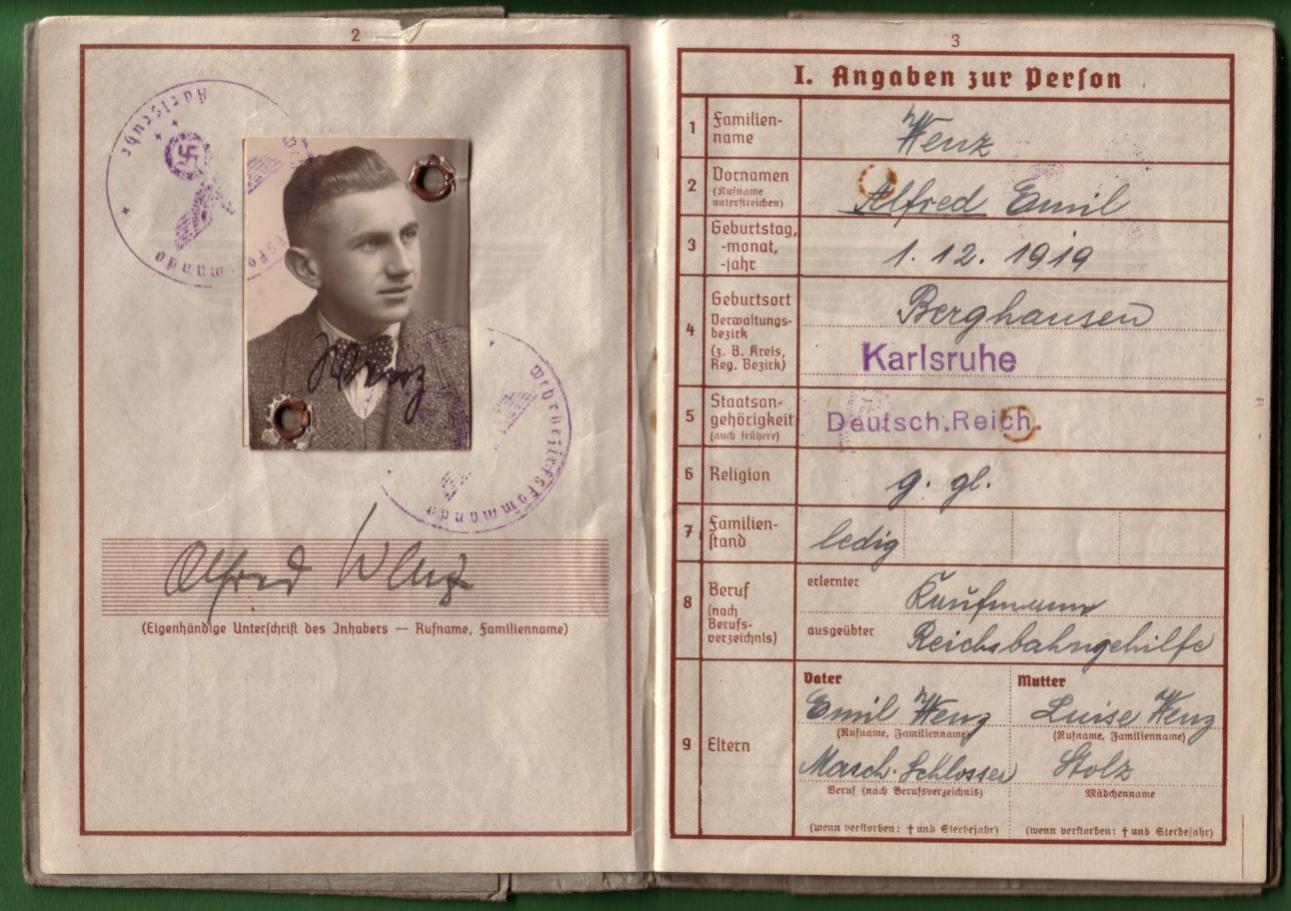 2
Karlsruhe
Wehrbezirkskommando
Wenz
Alfred Wenz
(Eigenhändige Unterschrift des Inhabers — Rufname, Familienname)
3
I. Angaben zur Person
1 Familien-
name
Wenz
2 Vornamen
(Rufname
unterstreichen)
Alfred Emil
3 Geburtstag,
-monat,
-jahr
1. 12. 1919
4 Geburtsort
Verwaltungs-
bezirk
(z. B. Kreis,
Reg. Bezirk)
Berghausen
Karlsruhe
5 Staatsan-
gehörigkeit
(auch frühere)
Deutsch.Reich.
6 Religion
g. gl.
7 Familien-
stand
ledig
8 Beruf
(nach
Berufs-
verzeichnis)
erlernter Kaufmann
ausgeübter Reichsbahngehilfe
9 Eltern
Vater Mutter
Emil Wenz Luise Wenz
(Rufname, Familienname) (Rufname, Familienname)
Masch. Schlosser Stolz
Beruf (nach Berufsverzeichnis) Mädchenname
(wenn verstorben: † und Sterbejahr) (wenn verstorben: † und Sterbejahr)